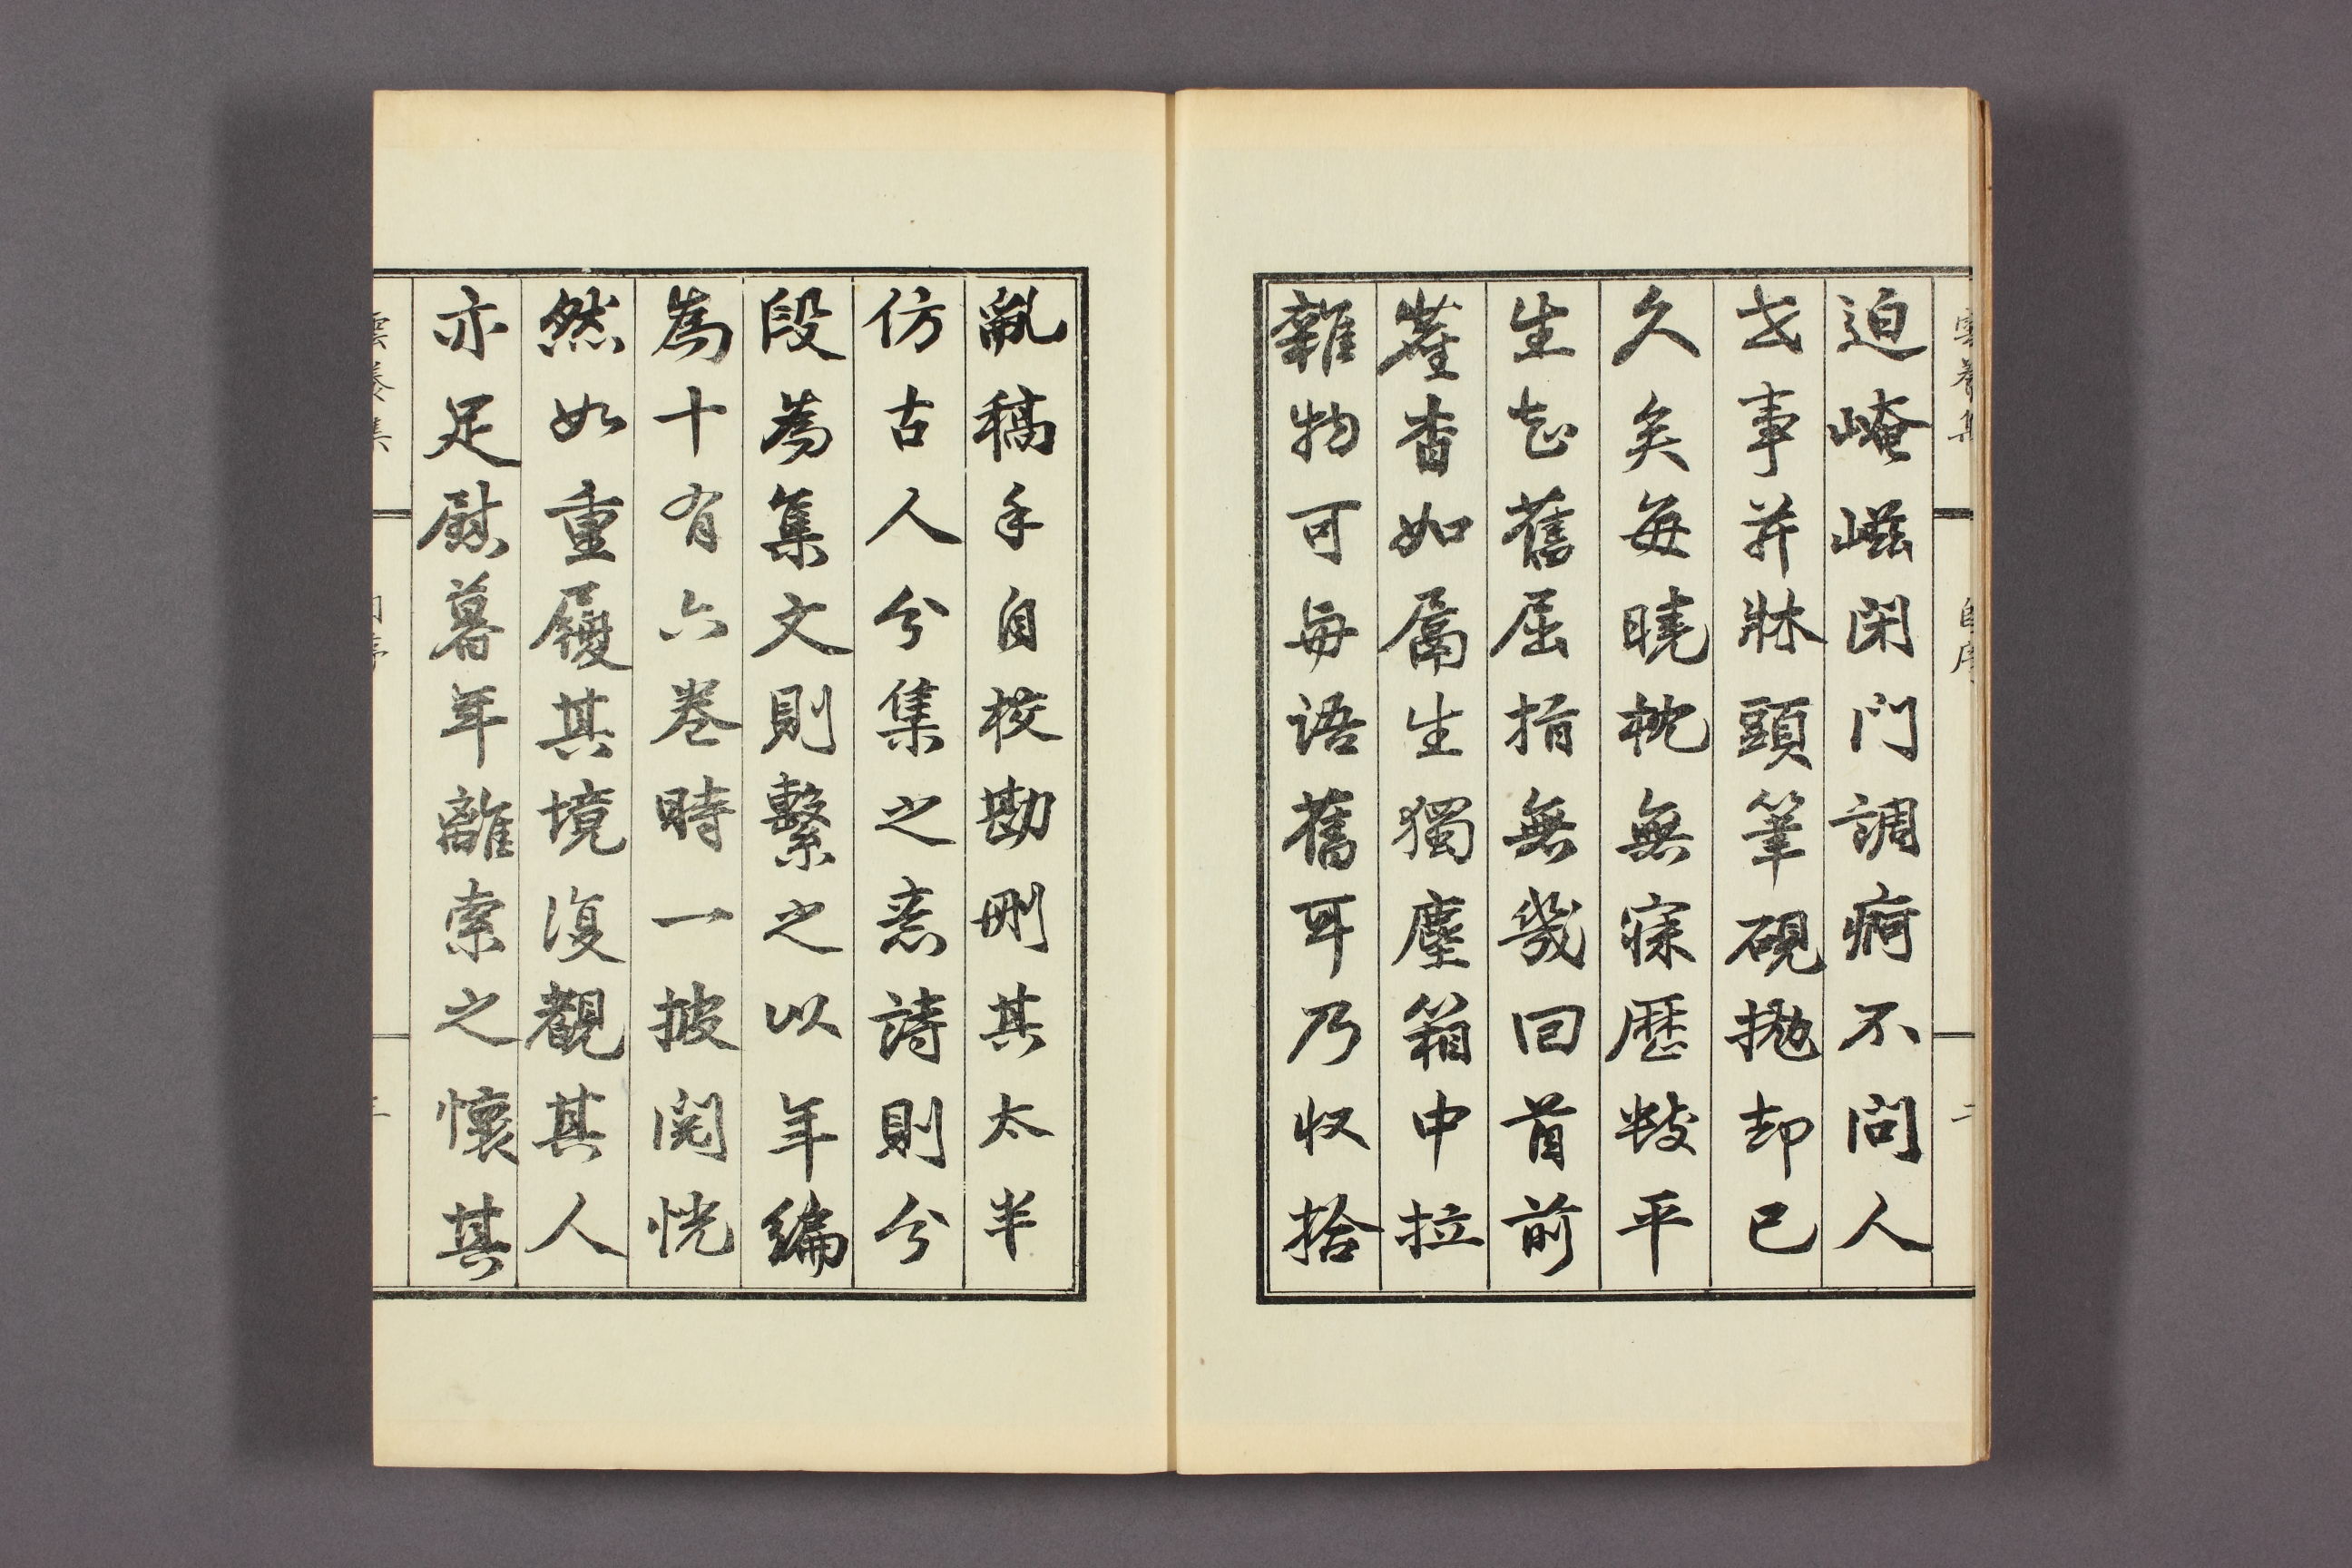 雲養集 自序 二
迫崦嵫閉門調痾不問人
世事并牀頭筆硯拋却已
久矣每曉枕無寐歷數平
生知舊屈指無幾回首前
塵杳如隔生獨塵箱中拉
雜物可與語舊耳乃收拾
亂稿手自校勘刪其太半
仿古人分集之意詩則分
段為集文則繫之以年編
為十有六卷時一披閱恍
然如重履其境復觀其人
亦足慰暮年離索之懷其
雲養集 自序 三